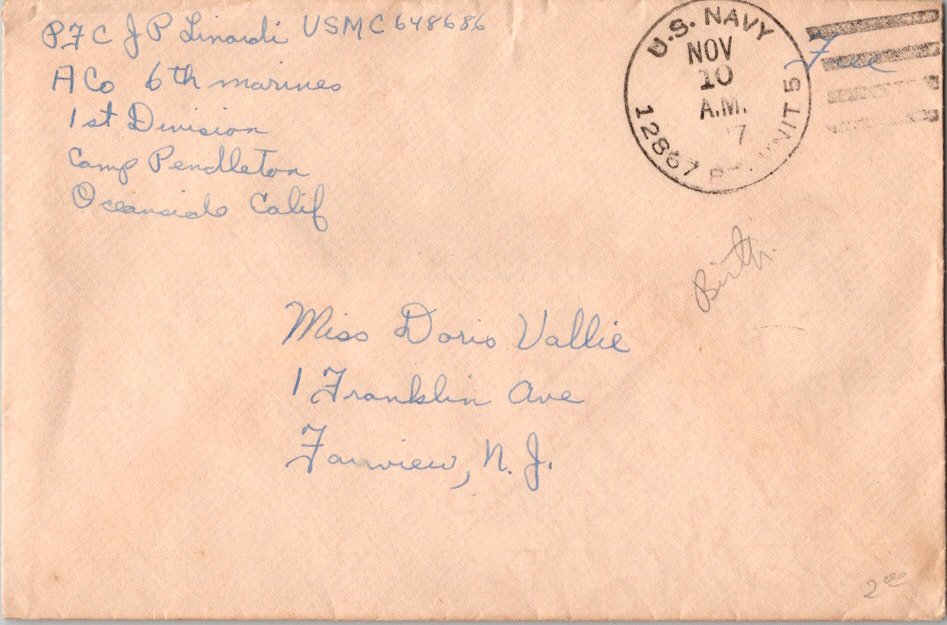 PFC J P Linardi USMC 648686
A Co 6th marines
1st Division
Camp Pendleton
Oceanside Calif
U.S. NAVY
NOV
10
A.M.
12867 UNIT 5
Free
Birth.
Miss Doris Vallie
1 Franklin Ave
Fairview, N. J.
2 00